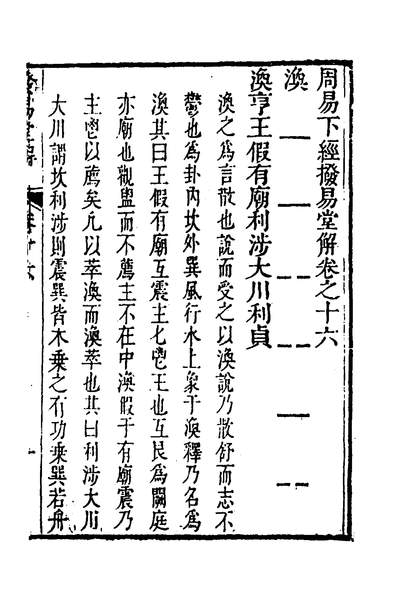 周易下經撥易堂解卷之十六
渙
渙亨王假有廟利涉大川利貞
渙之為言散也說而受之以渙說乃散舒而志不
鬱也為卦內坎外巽風行水上象于渙釋乃名為
渙其曰王假有廟互震主七鬯王也互艮為闕庭
亦廟也觀盥而不薦主不在中渙假于有廟震乃
主鬯以薦矣凡以萃渙而渙萃也其曰利涉大川
大川謂坎利涉則震巽皆木乗之有功乗巽若舟
卷十六